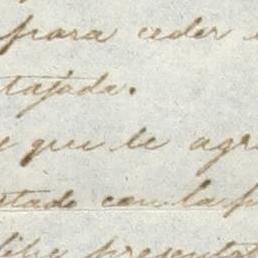 para ceder
tajada.
que le agr
tado con la p
libre presentat